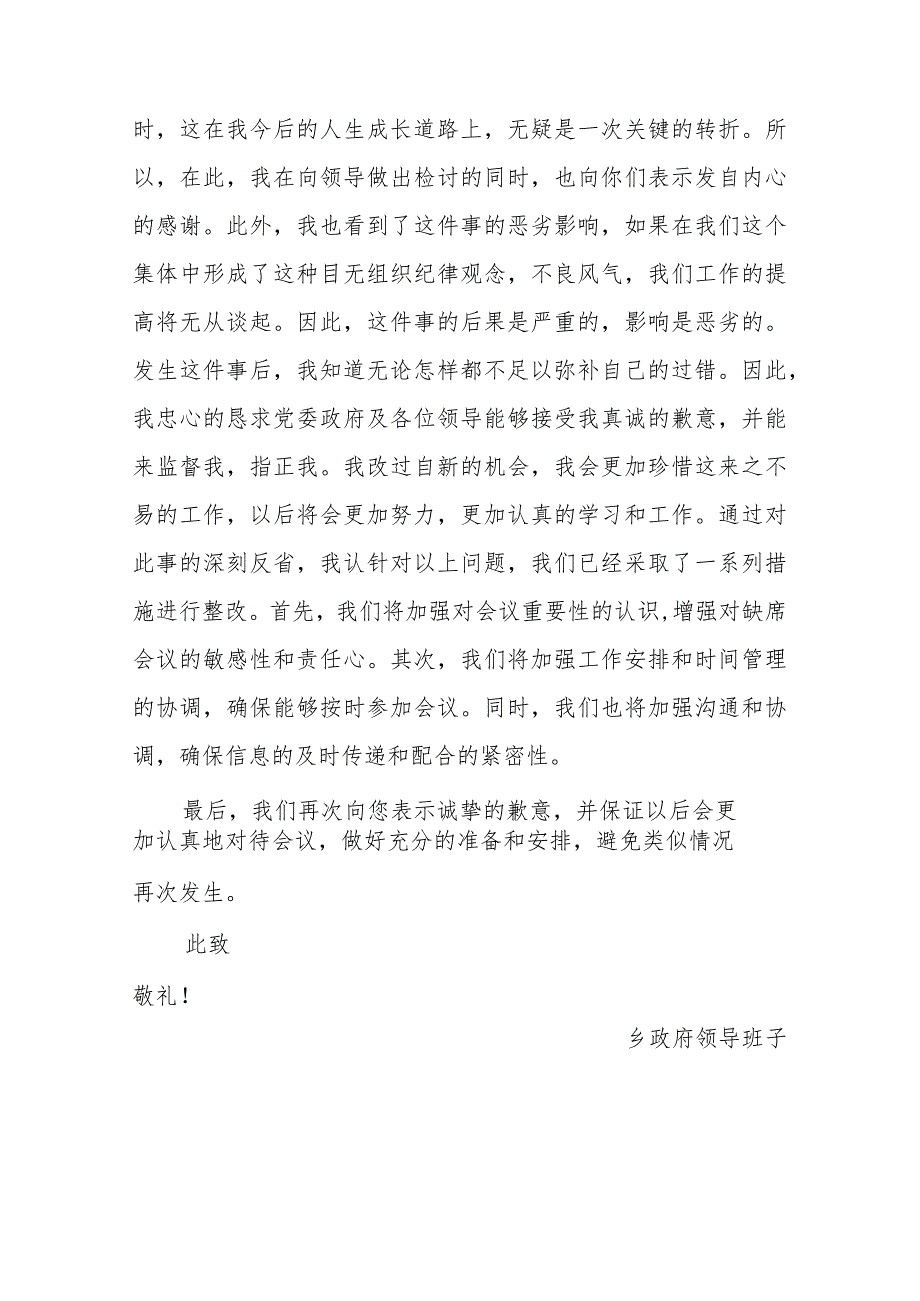 时，这在我今后的人生成长道路上，无疑是一次关键的转折。所
以，在此，我在向领导做出检讨的同时，也向你们表示发自内心
的感谢。此外，我也看到了这件事的恶劣影响，如果在我们这个
集体中形成了这种目无组织纪律观念，不良风气，我们工作的提
高将无从谈起。因此，这件事的后果是严重的，影响是恶劣的。
发生这件事后，我知道无论怎样都不足以弥补自己的过错。因此，
我忠心的恳求党委政府及各位领导能够接受我真诚的歉意，并能
来监督我，指正我。我改过自新的机会，我会更加珍惜这来之不
易的工作，以后将会更加努力，更加认真的学习和工作。通过对
此事的深刻反省，我认针对以上问题，我们已经采取了一系列措
施进行整改。首先，我们将加强对会议重要性的认识,增强对缺席
会议的敏感性和责任心。其次，我们将加强工作安排和时间管理
的协调，确保能够按时参加会议。同时，我们也将加强沟通和协
调，确保信息的及时传递和配合的紧密性。
最后，我们再次向您表示诚挚的歉意，并保证以后会更
加认真地对待会议，做好充分的准备和安排，避免类似情况
再次发生。
此致
敬礼！
乡政府领导班子